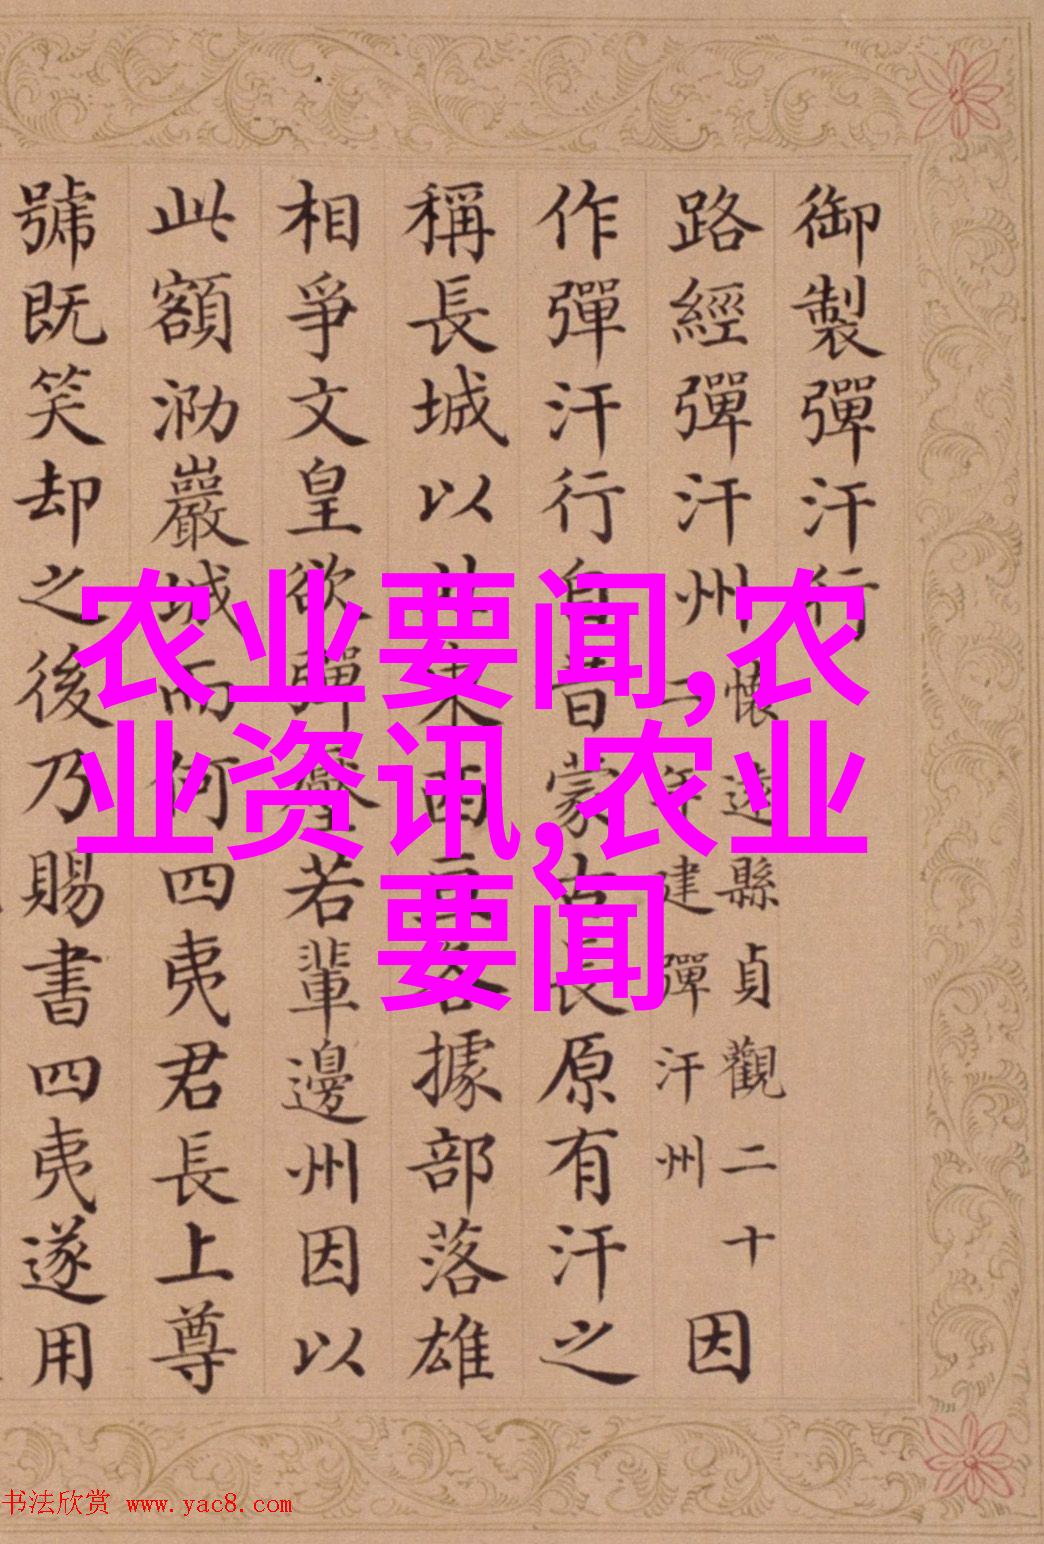 御製彈汗行
路經彈汗州
懷遠縣貞觀二十
二年建彈汗州
因
作彈汗行自昔蒙古長原有汗之
稱長城以北東西各據部落雄
相爭文皇欲彈壓若輩邊州因以
此額泐巖城而何四夷君長上尊
號既笑却之後乃賜書四夷遂用
农业要闻,农
业资讯,农业
要闻
书法欣赏 www.yac8.com